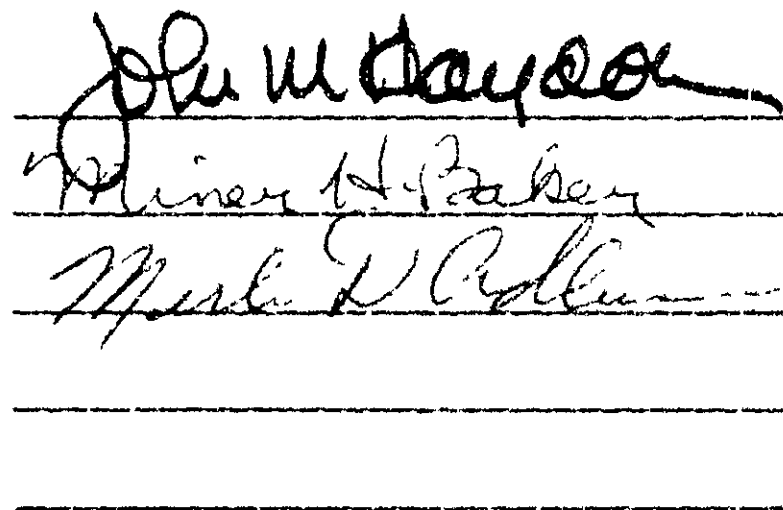 John M Haydon
Miner H. Baker
Merle D Adlum